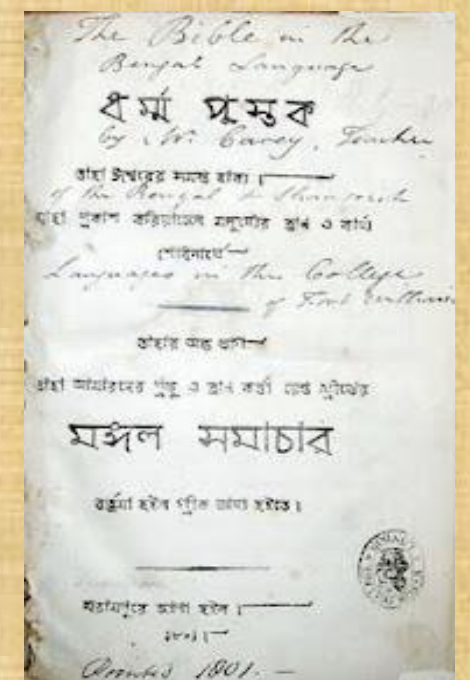 The Bible in the
Bengal Language
ধর্ম্ম পুস্তক
by W. Carey, Teacher
তাহা ঈশ্বরের সমস্ত বাক্য।
of the Bengal &
যাহা প্রকাশ করিয়াছেন মনুষ্যের ত্রাণ ও কার্য্য
শোধনার্থে
Languages in the College
of Fort William
তাহার অন্ত ভাগ
যাহা আমারদের প্রভু ও ত্রাণ কর্ত্তা য়েশু খ্রীষ্টের
মঙ্গল সমাচার
তর্জমা হইল গ্রীক ভাষা হইতে।
শ্রীরামপুরে ছাপা হইল।
১৮০১।
Printed 1801. —